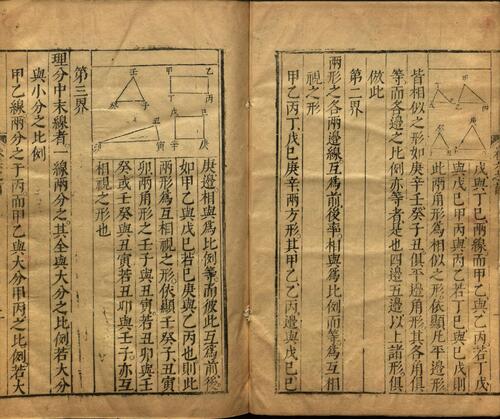 戊與丁巳兩線而甲乙若丁戊
與戊巳甲丙與丙乙若丁巳與巳戊則
此兩角形爲相似之形依顯凡平邊形
皆相似之形如庚辛壬癸子丑俱平邊角形其各角俱
等而各邊之比例亦等者是也四邊五邊以上諸形俱
倣此
第二界
兩形之各兩邊線互爲前後率相與爲比例而等爲互相
視之形
甲乙丙丁戊巳庚辛兩方形其甲乙乙丙邊與戊巳巳
庚邊相與爲比例等而彼此互爲前後
如甲乙與戊巳若巳庚與乙丙也則此
兩形爲互相視之形依顯壬癸子丑寅
卯兩角形之壬子與丑寅若丑卯與壬
癸或壬癸與丑寅若丑卯與壬子亦互
相視之形也
第三界
理分中末線者一線兩分之其全與大分之比例若大分
與小分之比例
甲乙線兩分之于丙而甲乙與大分甲丙之比例若大